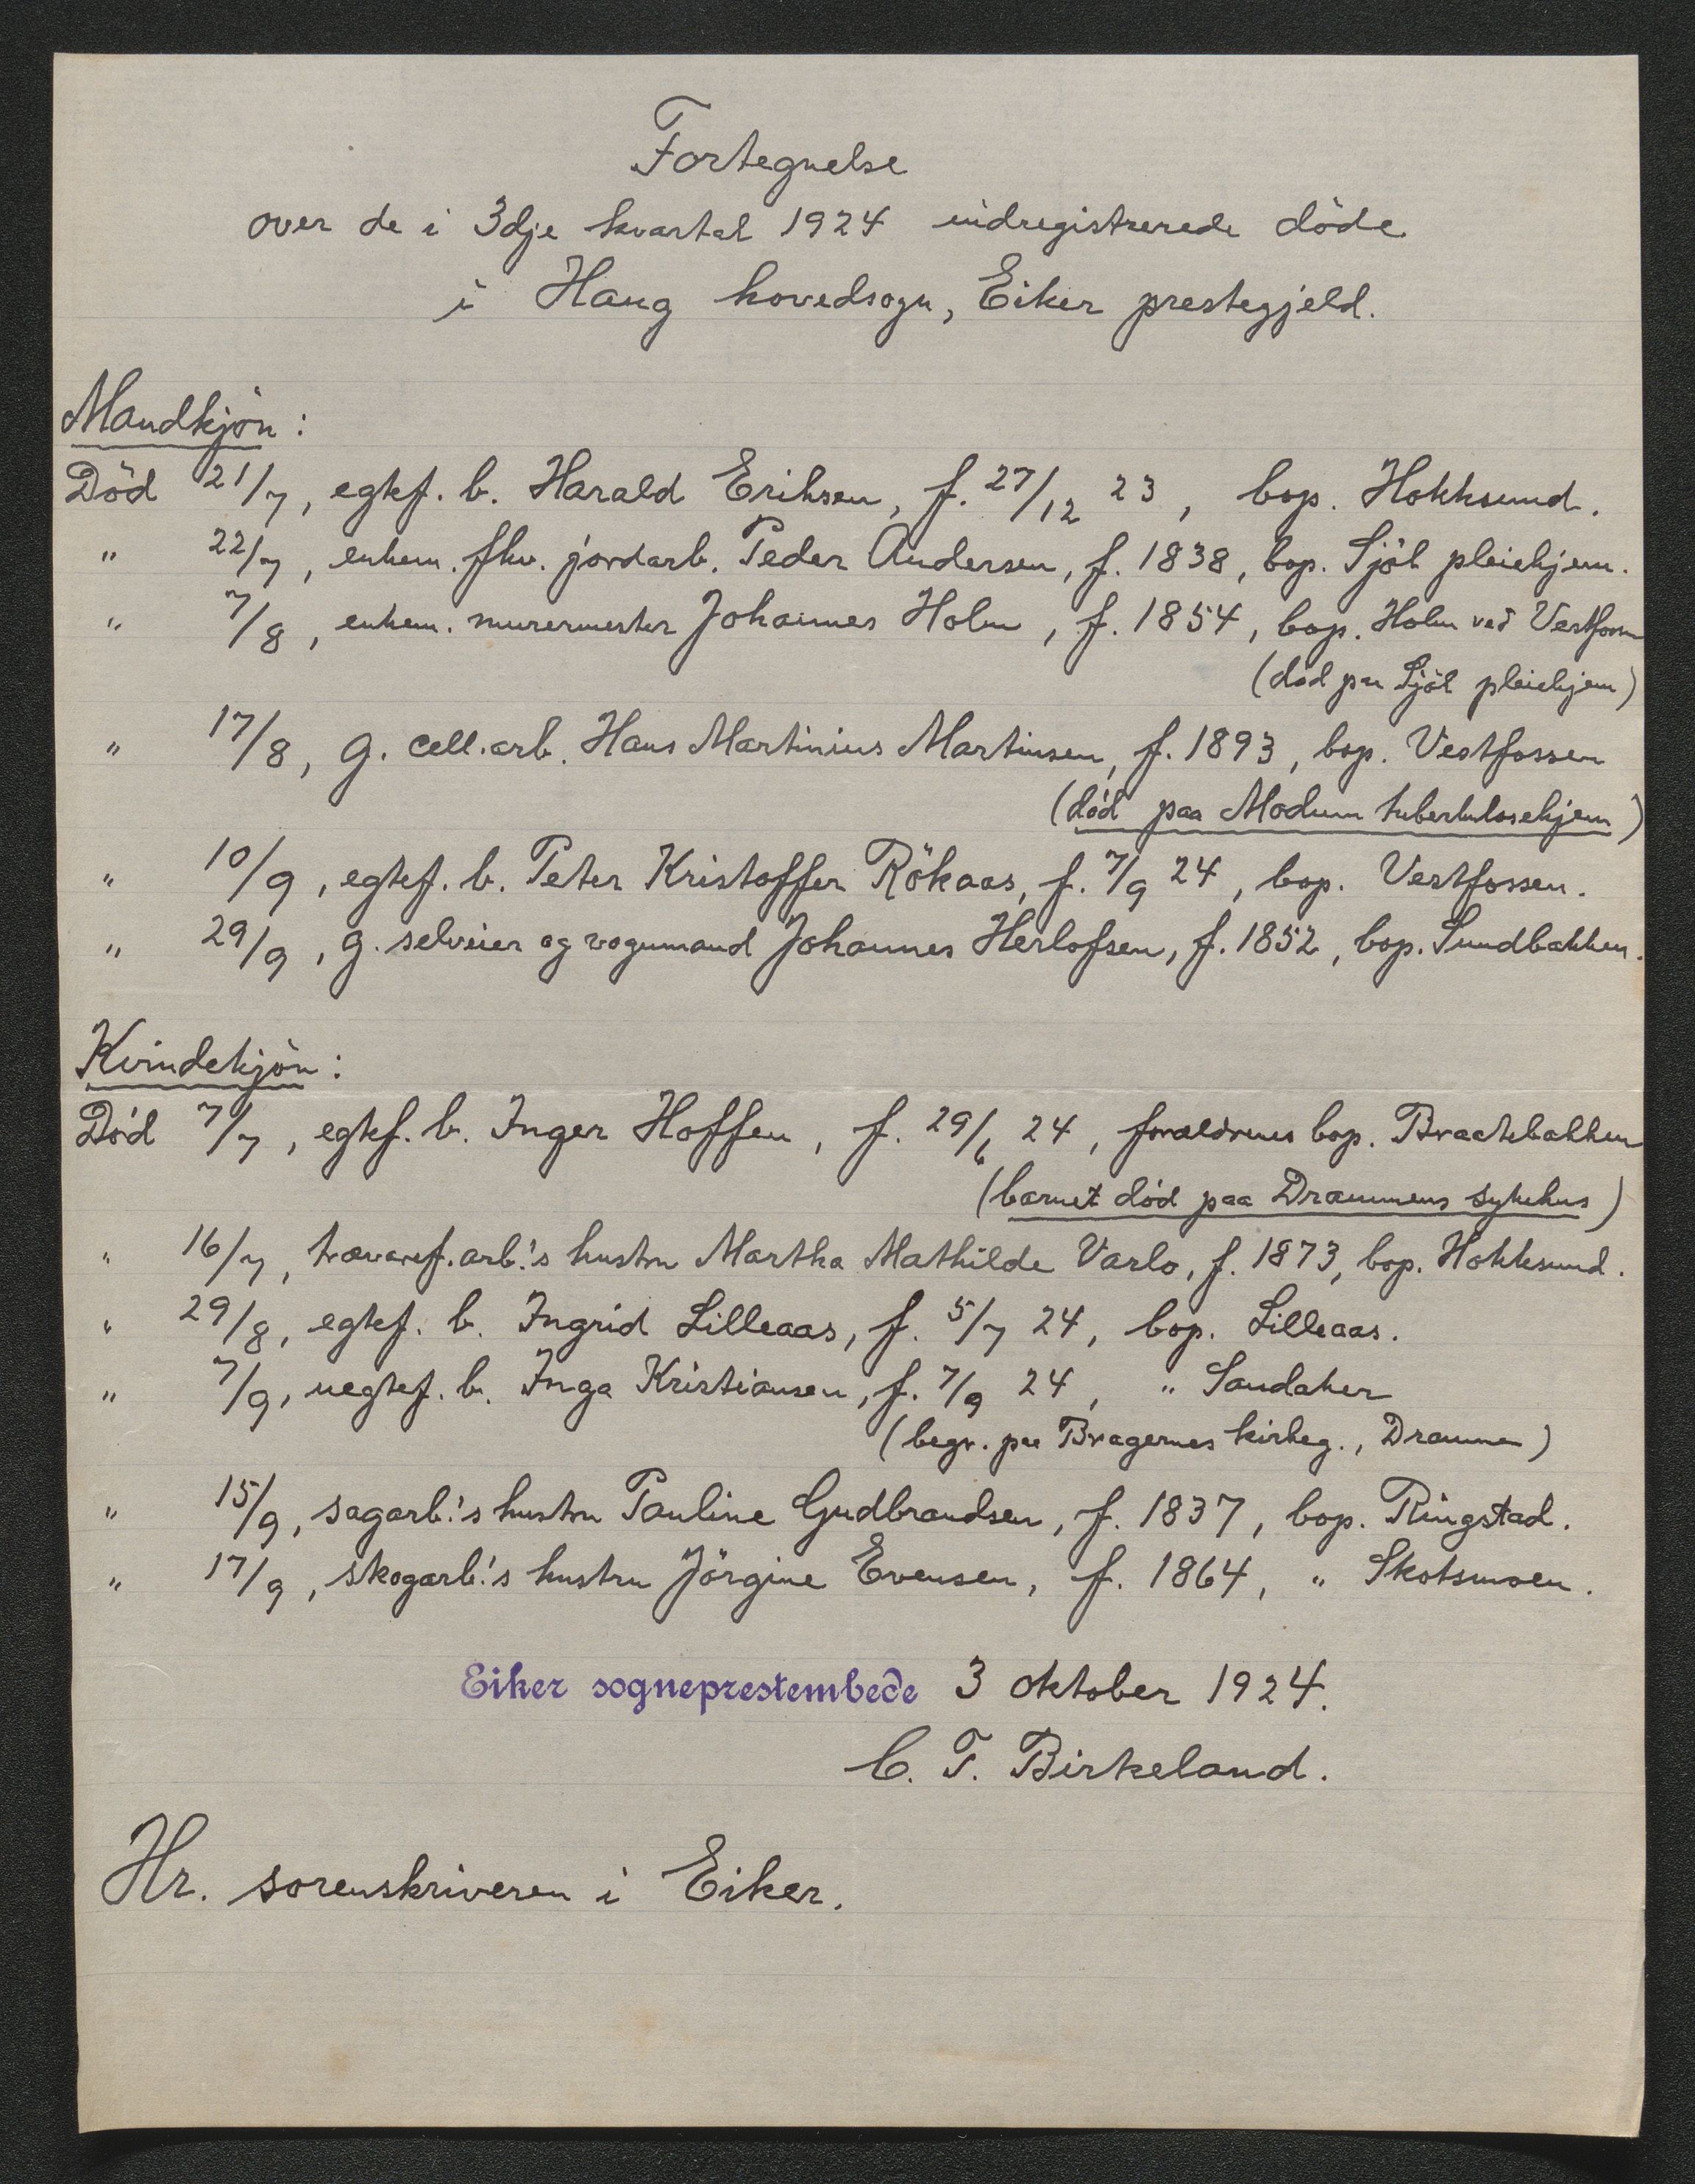 Fortegnelse
over de i 3dje kvartal 1924 indregistrerede döde
i Haug hovedsogn, Eiker prestegjeld.
Mandkjön:
Död 21/7, egtef. b. Harald Eriksen, f. 27/12 23, bop. Hokksund.
" 22/7, enkem. fhv. jordarb. Peder Andersen, f. 1838, bop. Sjöl pleiehjem.
" 7/8, enkem. murermester Johannes Holm, f. 1854, bop. Holm ved Vestfossen
(död paa Sjöl pleiehjem)
" 17/8, g. cell.arb. Hans Martinius Martinsen, f. 1893, bop. Vestfossen
(död paa Modum tuberkulosehjem)
" 10/9, egtef. b. Peter Kristoffer Rökaas, f. 7/9 24, bop. Vestfossen.
" 29/9, g. selveier og vognmand Johannes Herlofsen, f. 1852, bop. Sundbakken.
Kvindekjön:
Död 7/7, egtef. b. Inger Hoffen, f. 29/6 24, forældrenes bop. Braatebakken
(barnet död paa Drammens sykehus)
" 16/7, trævaref.arb.'s hustru Martha Mathilde Varlo, f. 1873, bop. Hokksund.
" 29/8, egtef. b. Ingrid Lilleaas, f. 5/7 24, bop. Lilleaas.
" 7/9, uegtef. b. Inga Kristiansen, f. 7/9 24, " Sandaker
(begr. paa Bragernes kirkeg., Drammen)
" 15/9, sagarb.'s hustru Pauline Gudbrandsen, f. 1837, bop. Ringstad.
" 17/9, skogarb.'s hustru Jörgine Evensen, f. 1864, " Skotsmoen.
Eiker sogneprestembede 3 oktober 1924.
C. T. Birkeland.
Hr. sorenskriveren i Eiker.